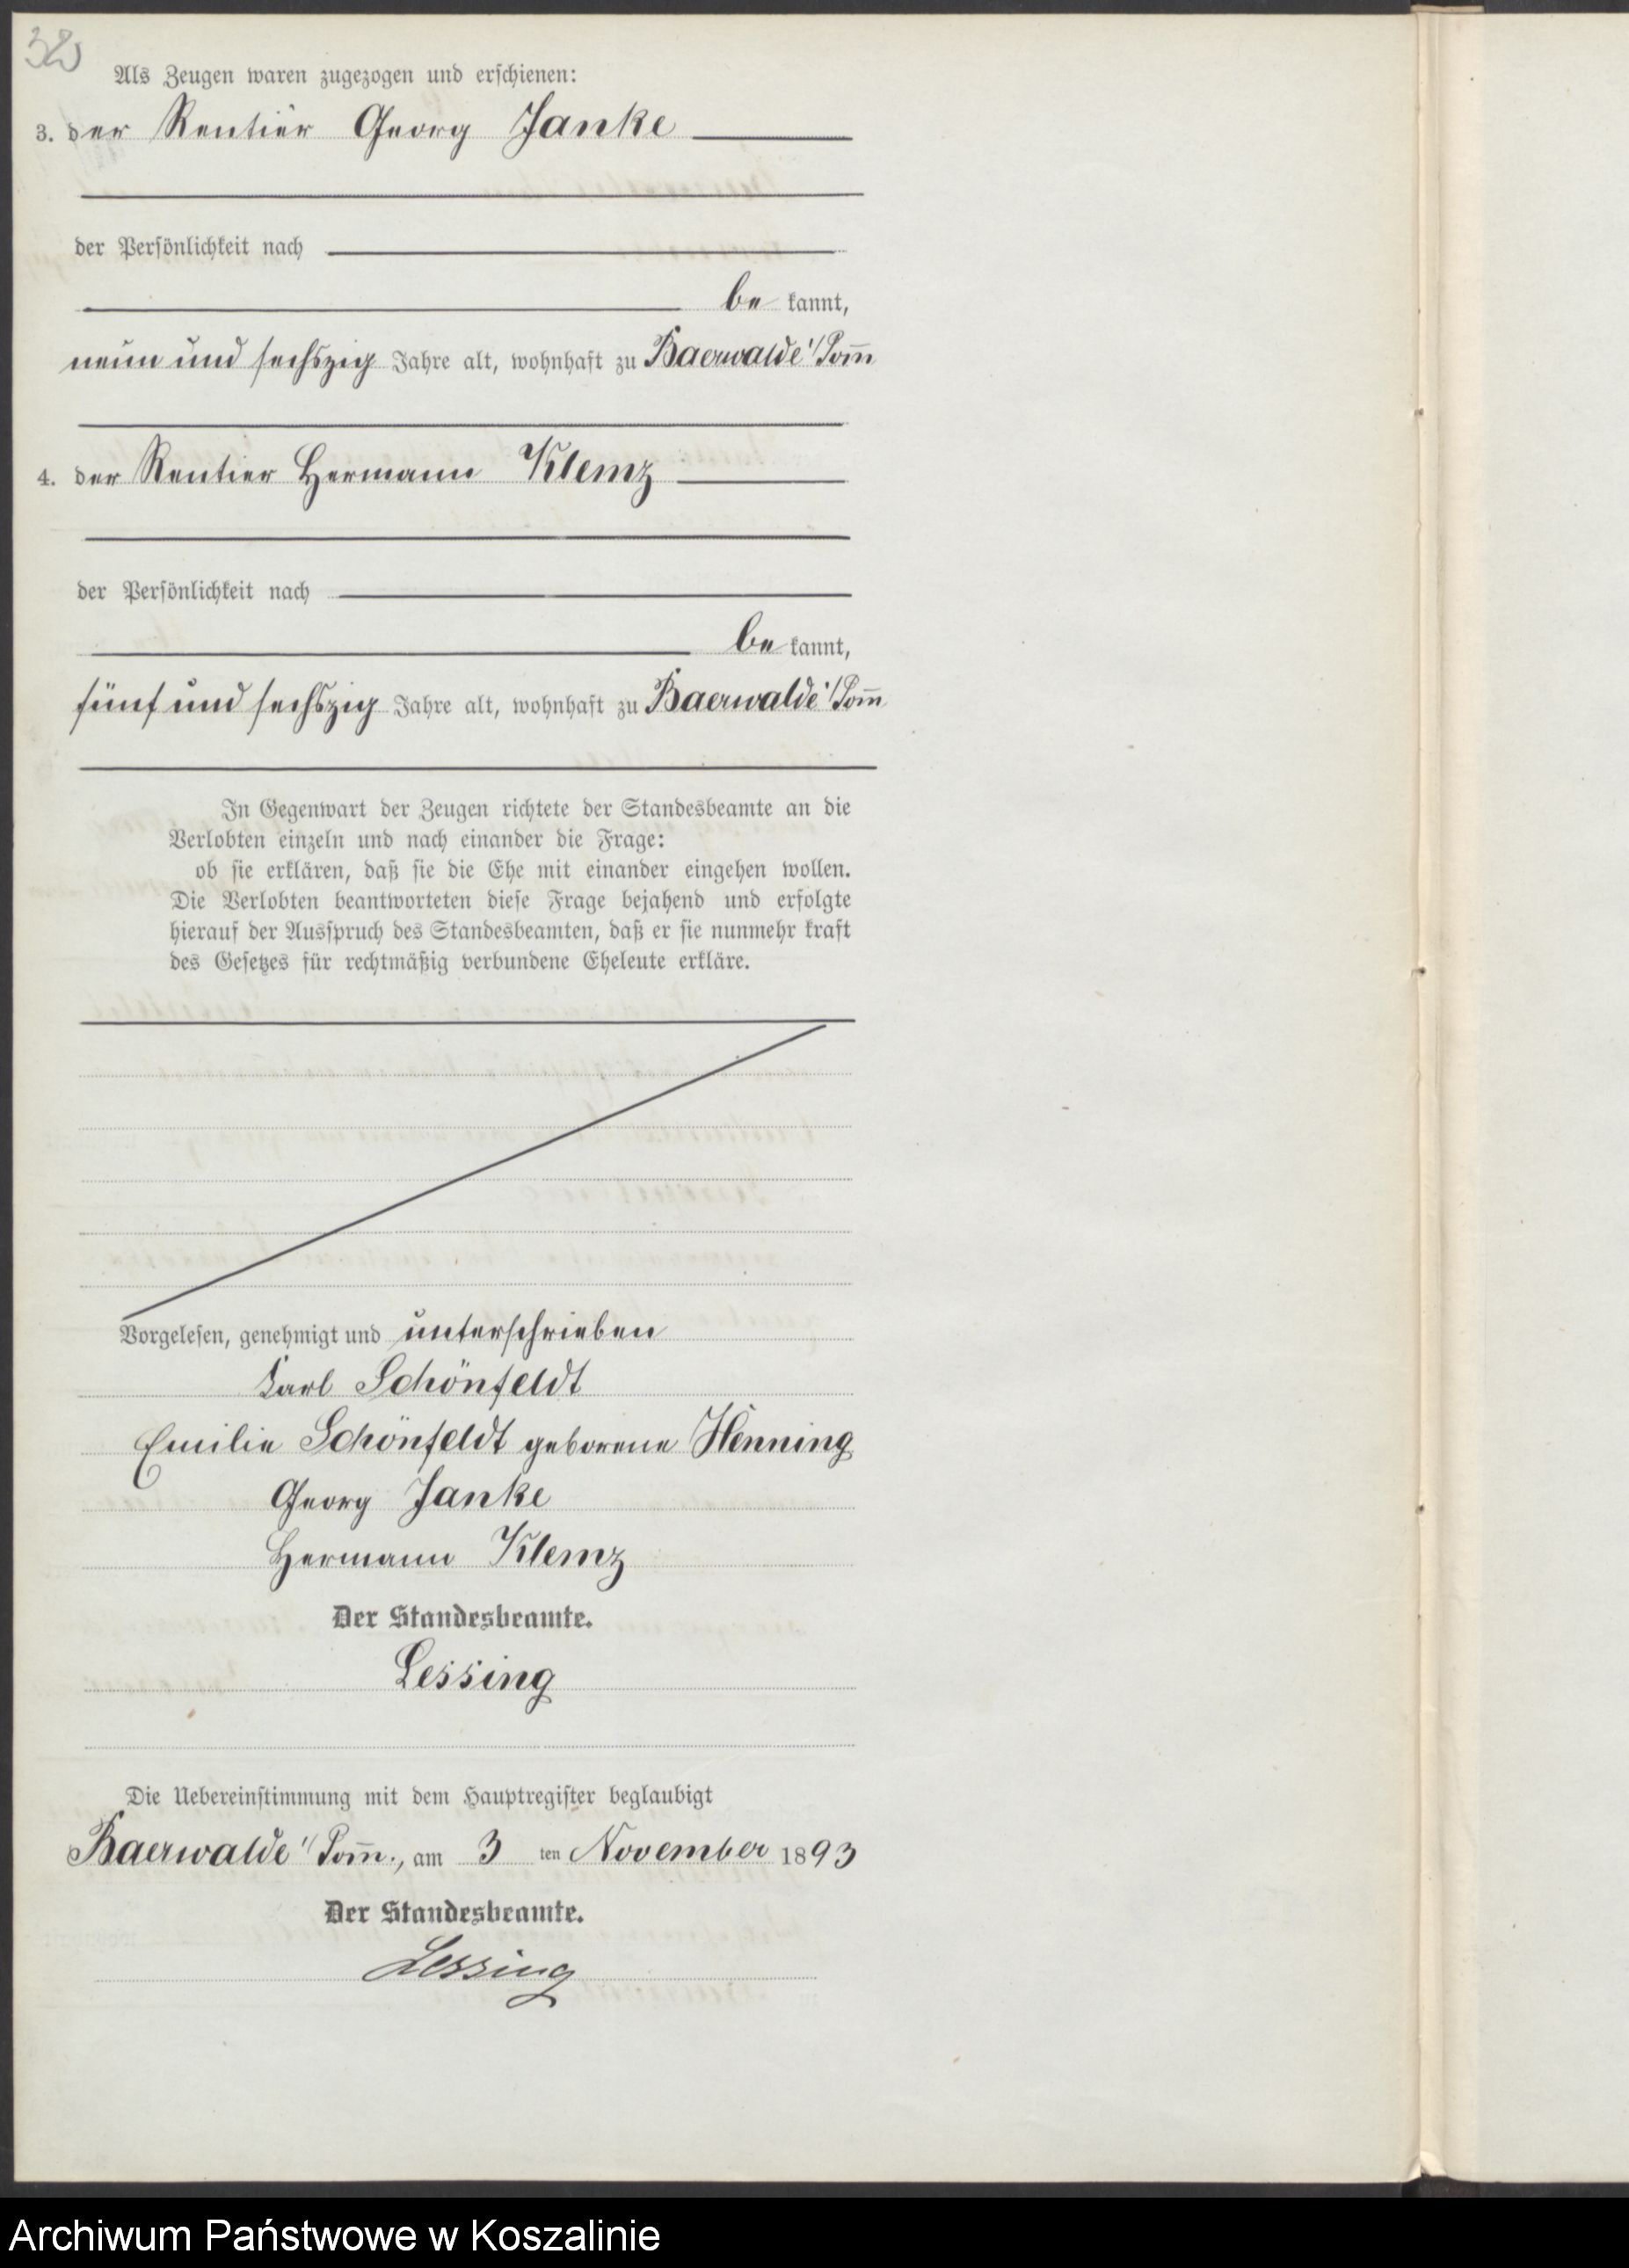 Als Zeugen waren zugezogen und erschienen:
3. der Rentier Georg Janke
der Persönlichkeit nach
be kannt,
neun und sechszig Jahre alt, wohnhaft zu Baerwalde i/Pom̄
4. der Rentier Hermann Klemz
der Persönlichkeit nach
be kannt,
fünf und sechszig Jahre alt, wohnhaft zu Baerwalde i/Pom̄
In Gegenwart der Zeugen richtete der Standesbeamte an die
Verlobten einzeln und nach einander die Frage:
ob sie erklären, daß sie die Ehe mit einander eingehen wollen.
Die Verlobten beantworteten diese Frage bejahend und erfolgte
hierauf der Ausspruch des Standesbeamten, daß er sie nunmehr kraft
des Gesetzes für rechtmäßig verbundene Eheleute erkläre.
Vorgelesen, genehmigt und unterschrieben
Karl Schönfeldt
Emilie Schönfeldt geborene Henning
Georg Janke
Hermann Klemz
Der Standesbeamte.
Lessing
Die Uebereinstimmung mit dem Hauptregister beglaubigt
Baerwalde i/Pom̄., am 3 ten November 1893
Der Standesbeamte.
Lessing
Archiwum Państwowe w Koszalinie